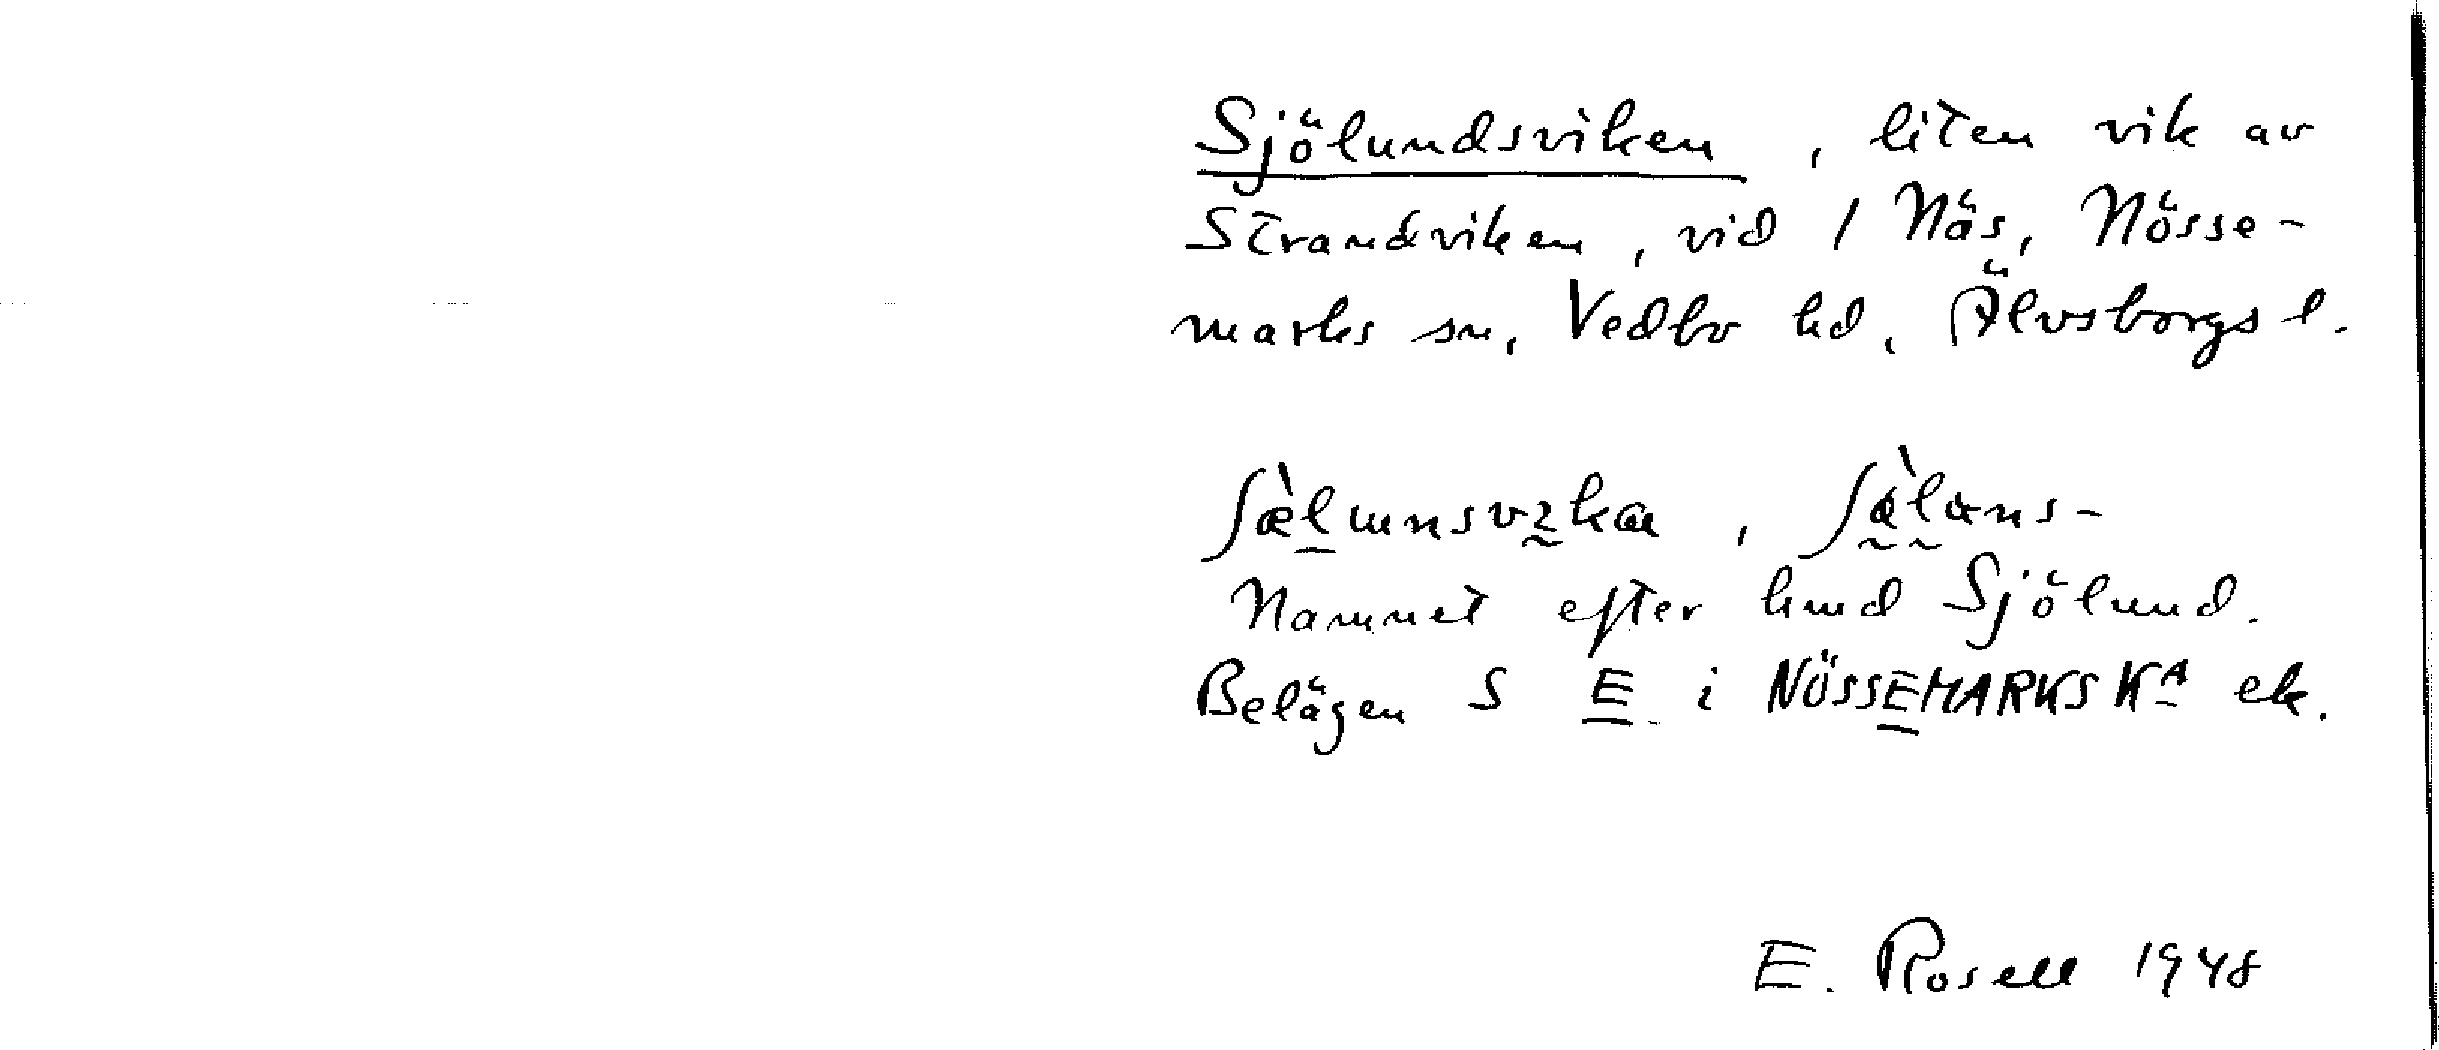 Sjölundsviken, liten vik av
Strandviken, vid 1 Näs, Nösse-
marks sn, Vedbo hd, Älvsborgs l.
Namnet efter kund Sjölund.
Belägen S E i NÖSSEMARKS KA ek.
E. Rosell 1948